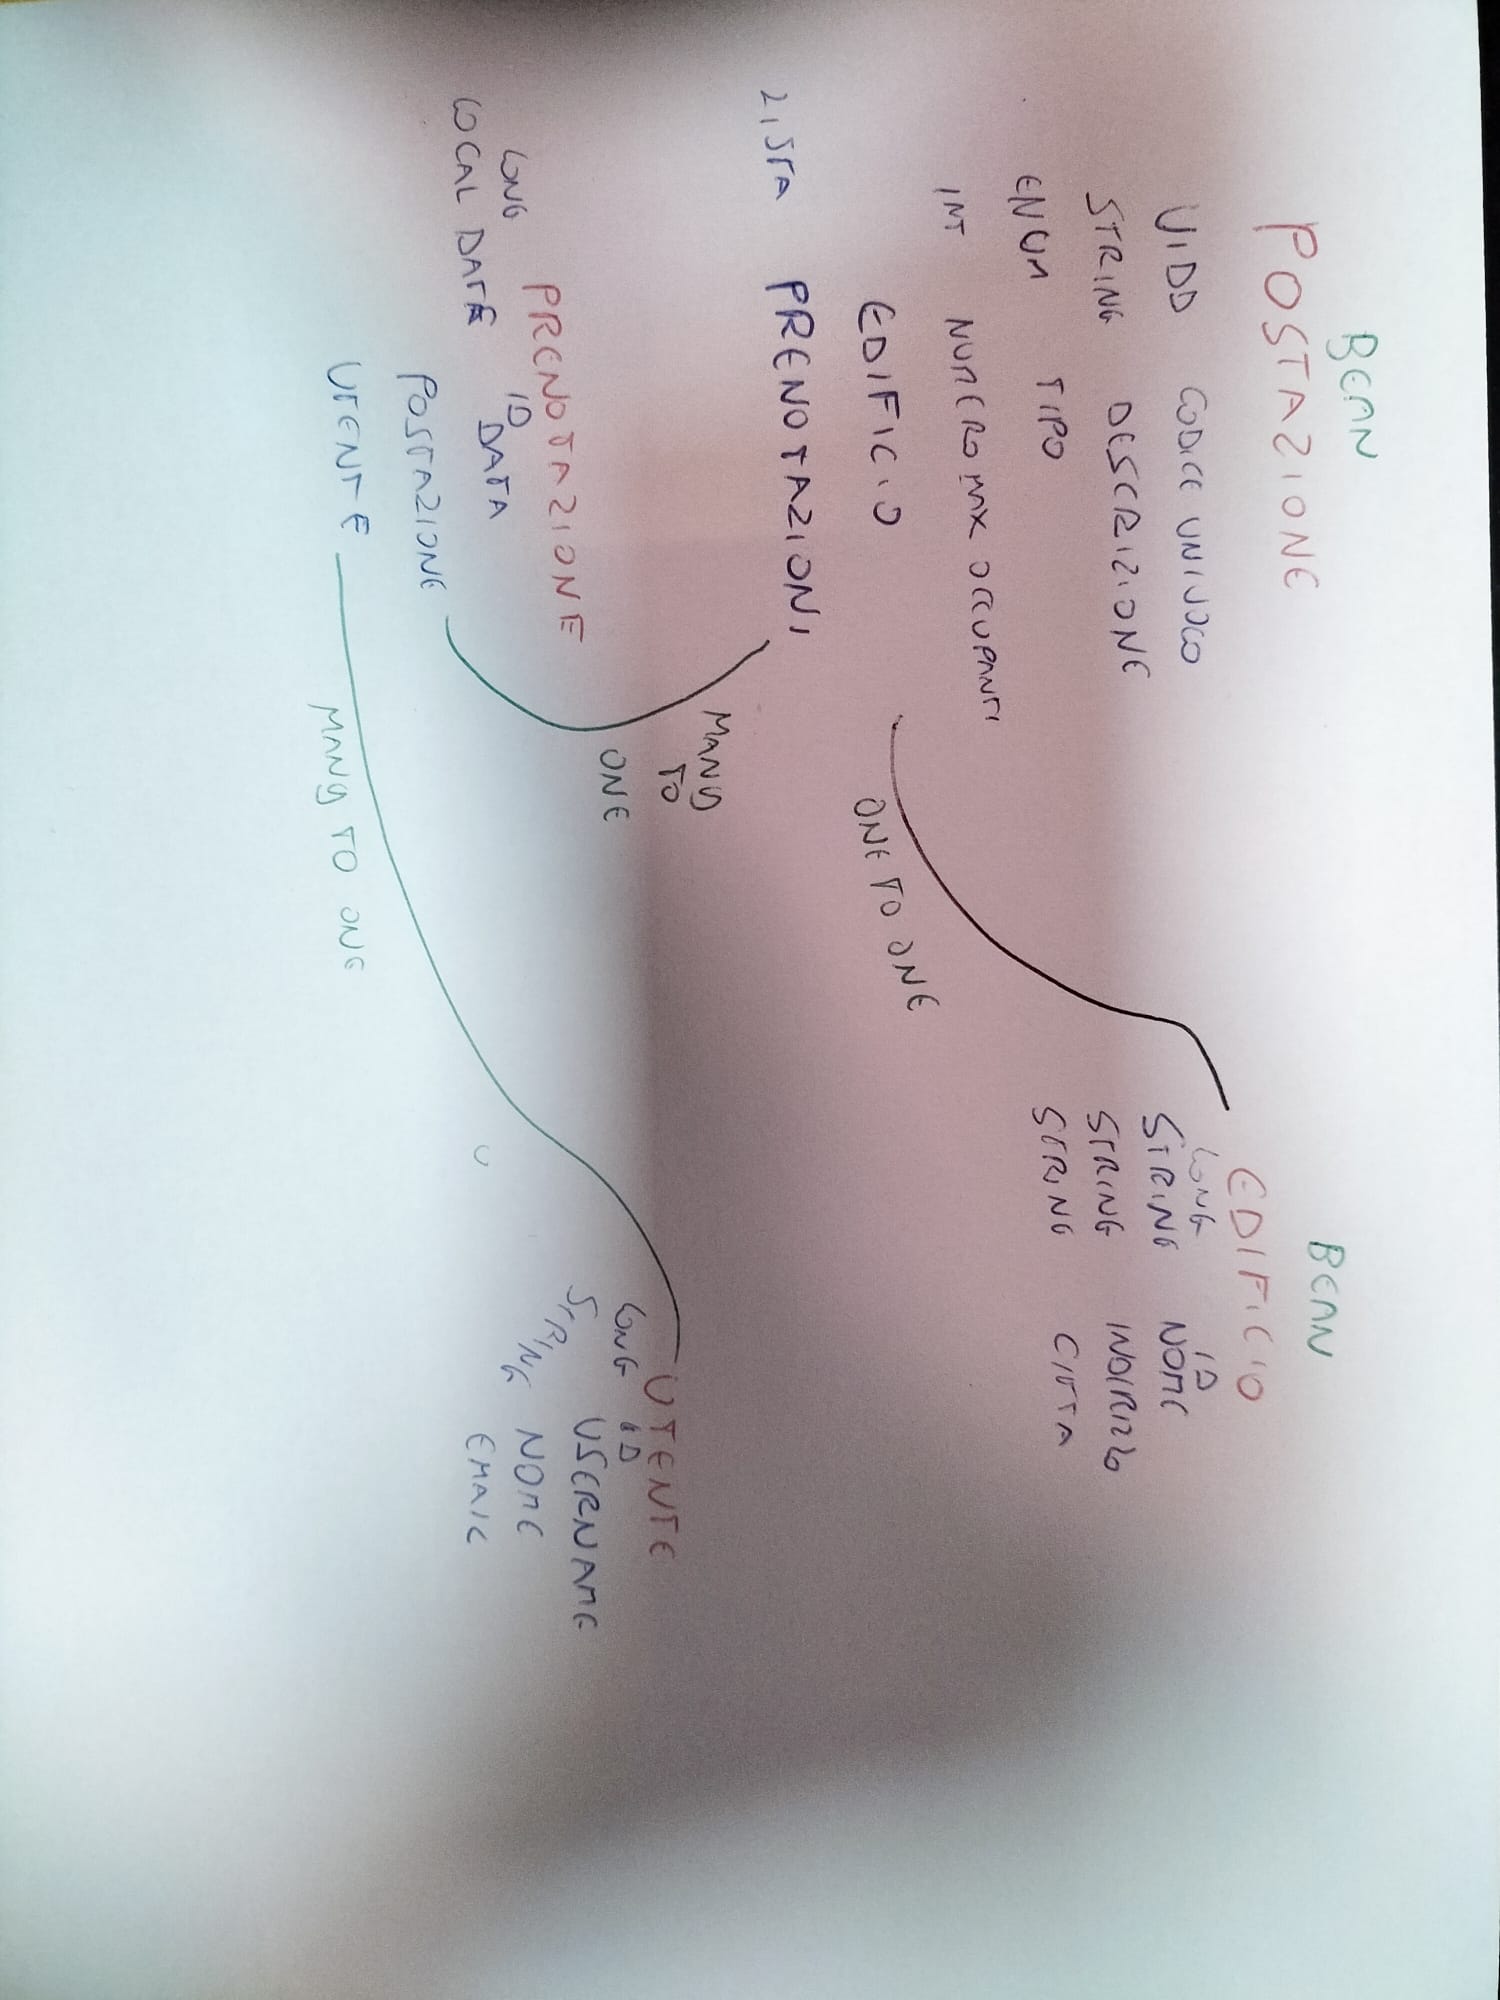 BEAN
POSTAZIONE
UIDD CODICE UNIVOCO
STRING DESCRIZIONE
ENUM TIPO
INT NUMERO MAX OCCUPANTI
EDIFICIO
LISTA PRENOTAZIONI
BEAN
EDIFICIO
LONG ID
STRING NOME
STRING INDIRIZZO
STRING CITTA
ONE TO ONE
MANY
TO
ONE
PRENOTAZIONE
LONG ID
LOCAL DATE DATA
POSTAZIONE
UTENTE
MANY TO ONE
UTENTE
LONG ID
STRING USERNAME
NOME
EMAIL